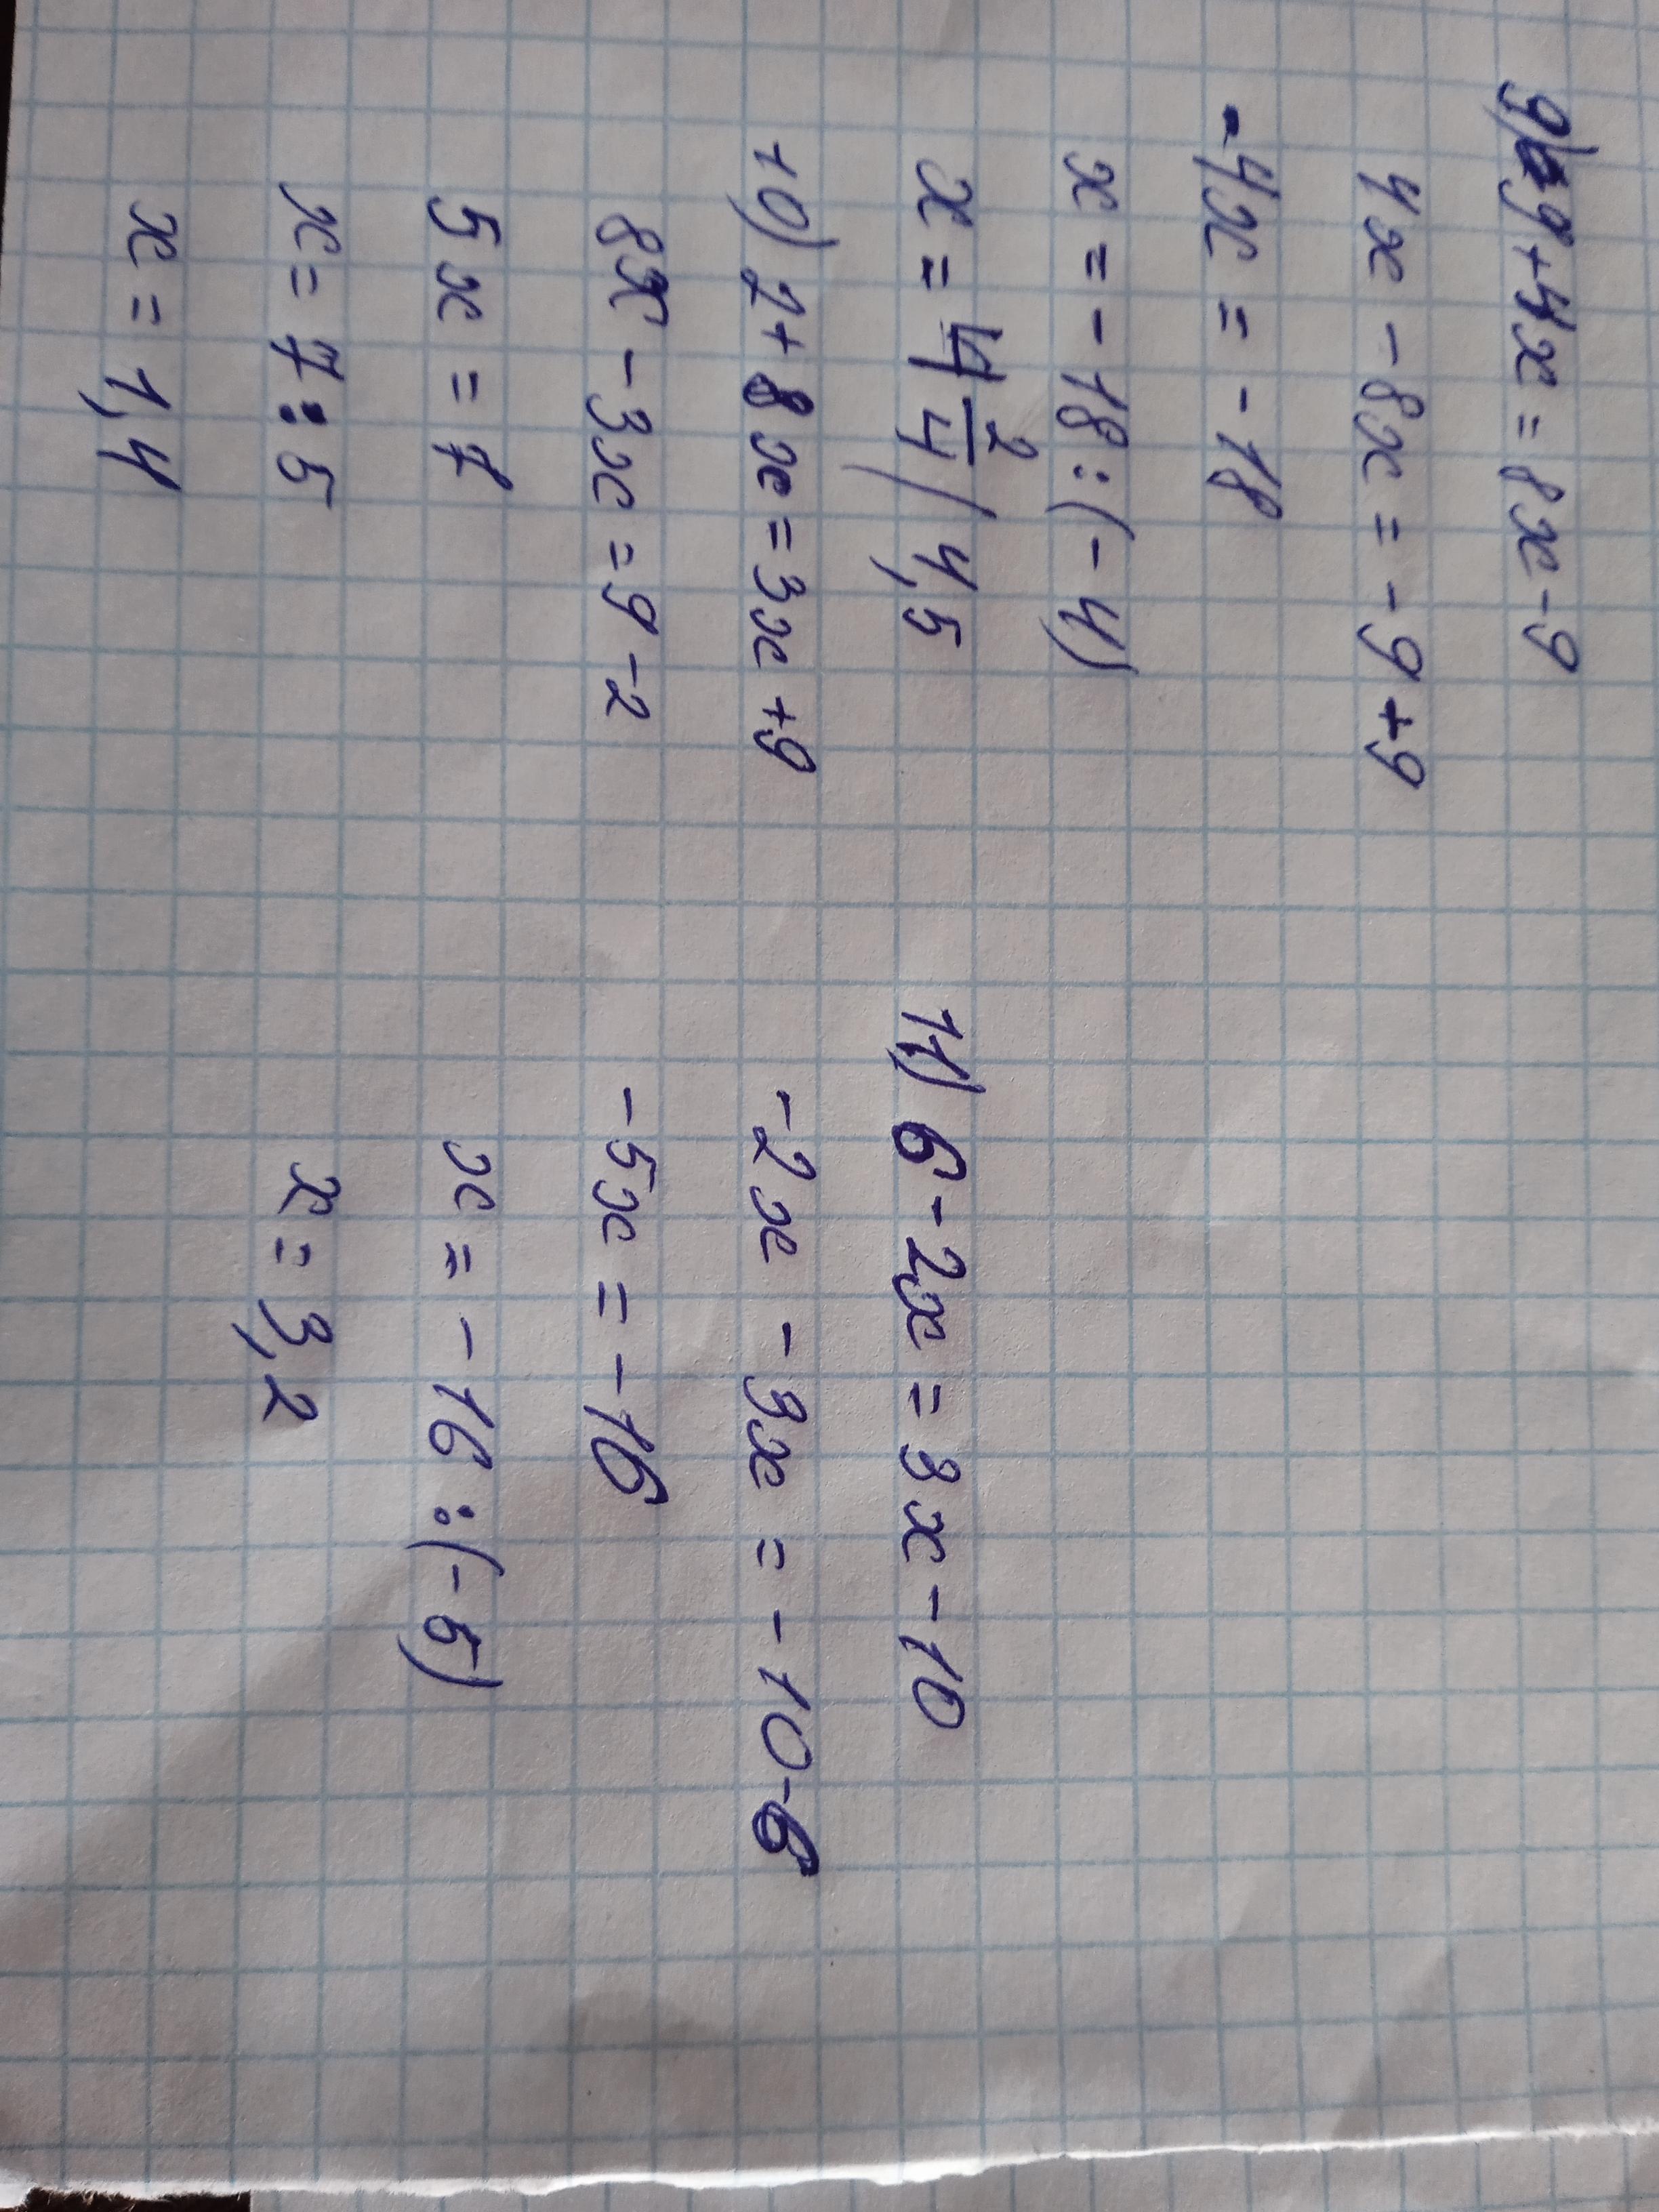 9) 9+4x = 8x-9
4x - 8x = -9+9
-4x = -18
x = -18 : (-4)
x = 4 2/4 / 4,5
10) 2+8x = 3x+9
8x - 3x = 9 - 2
5x = 7
x = 7 : 5
x = 1,4
11) 6-2x = 3x-10
-2x - 3x = -10-6
-5x = -16
x = -16 : (-5)
x = 3,2